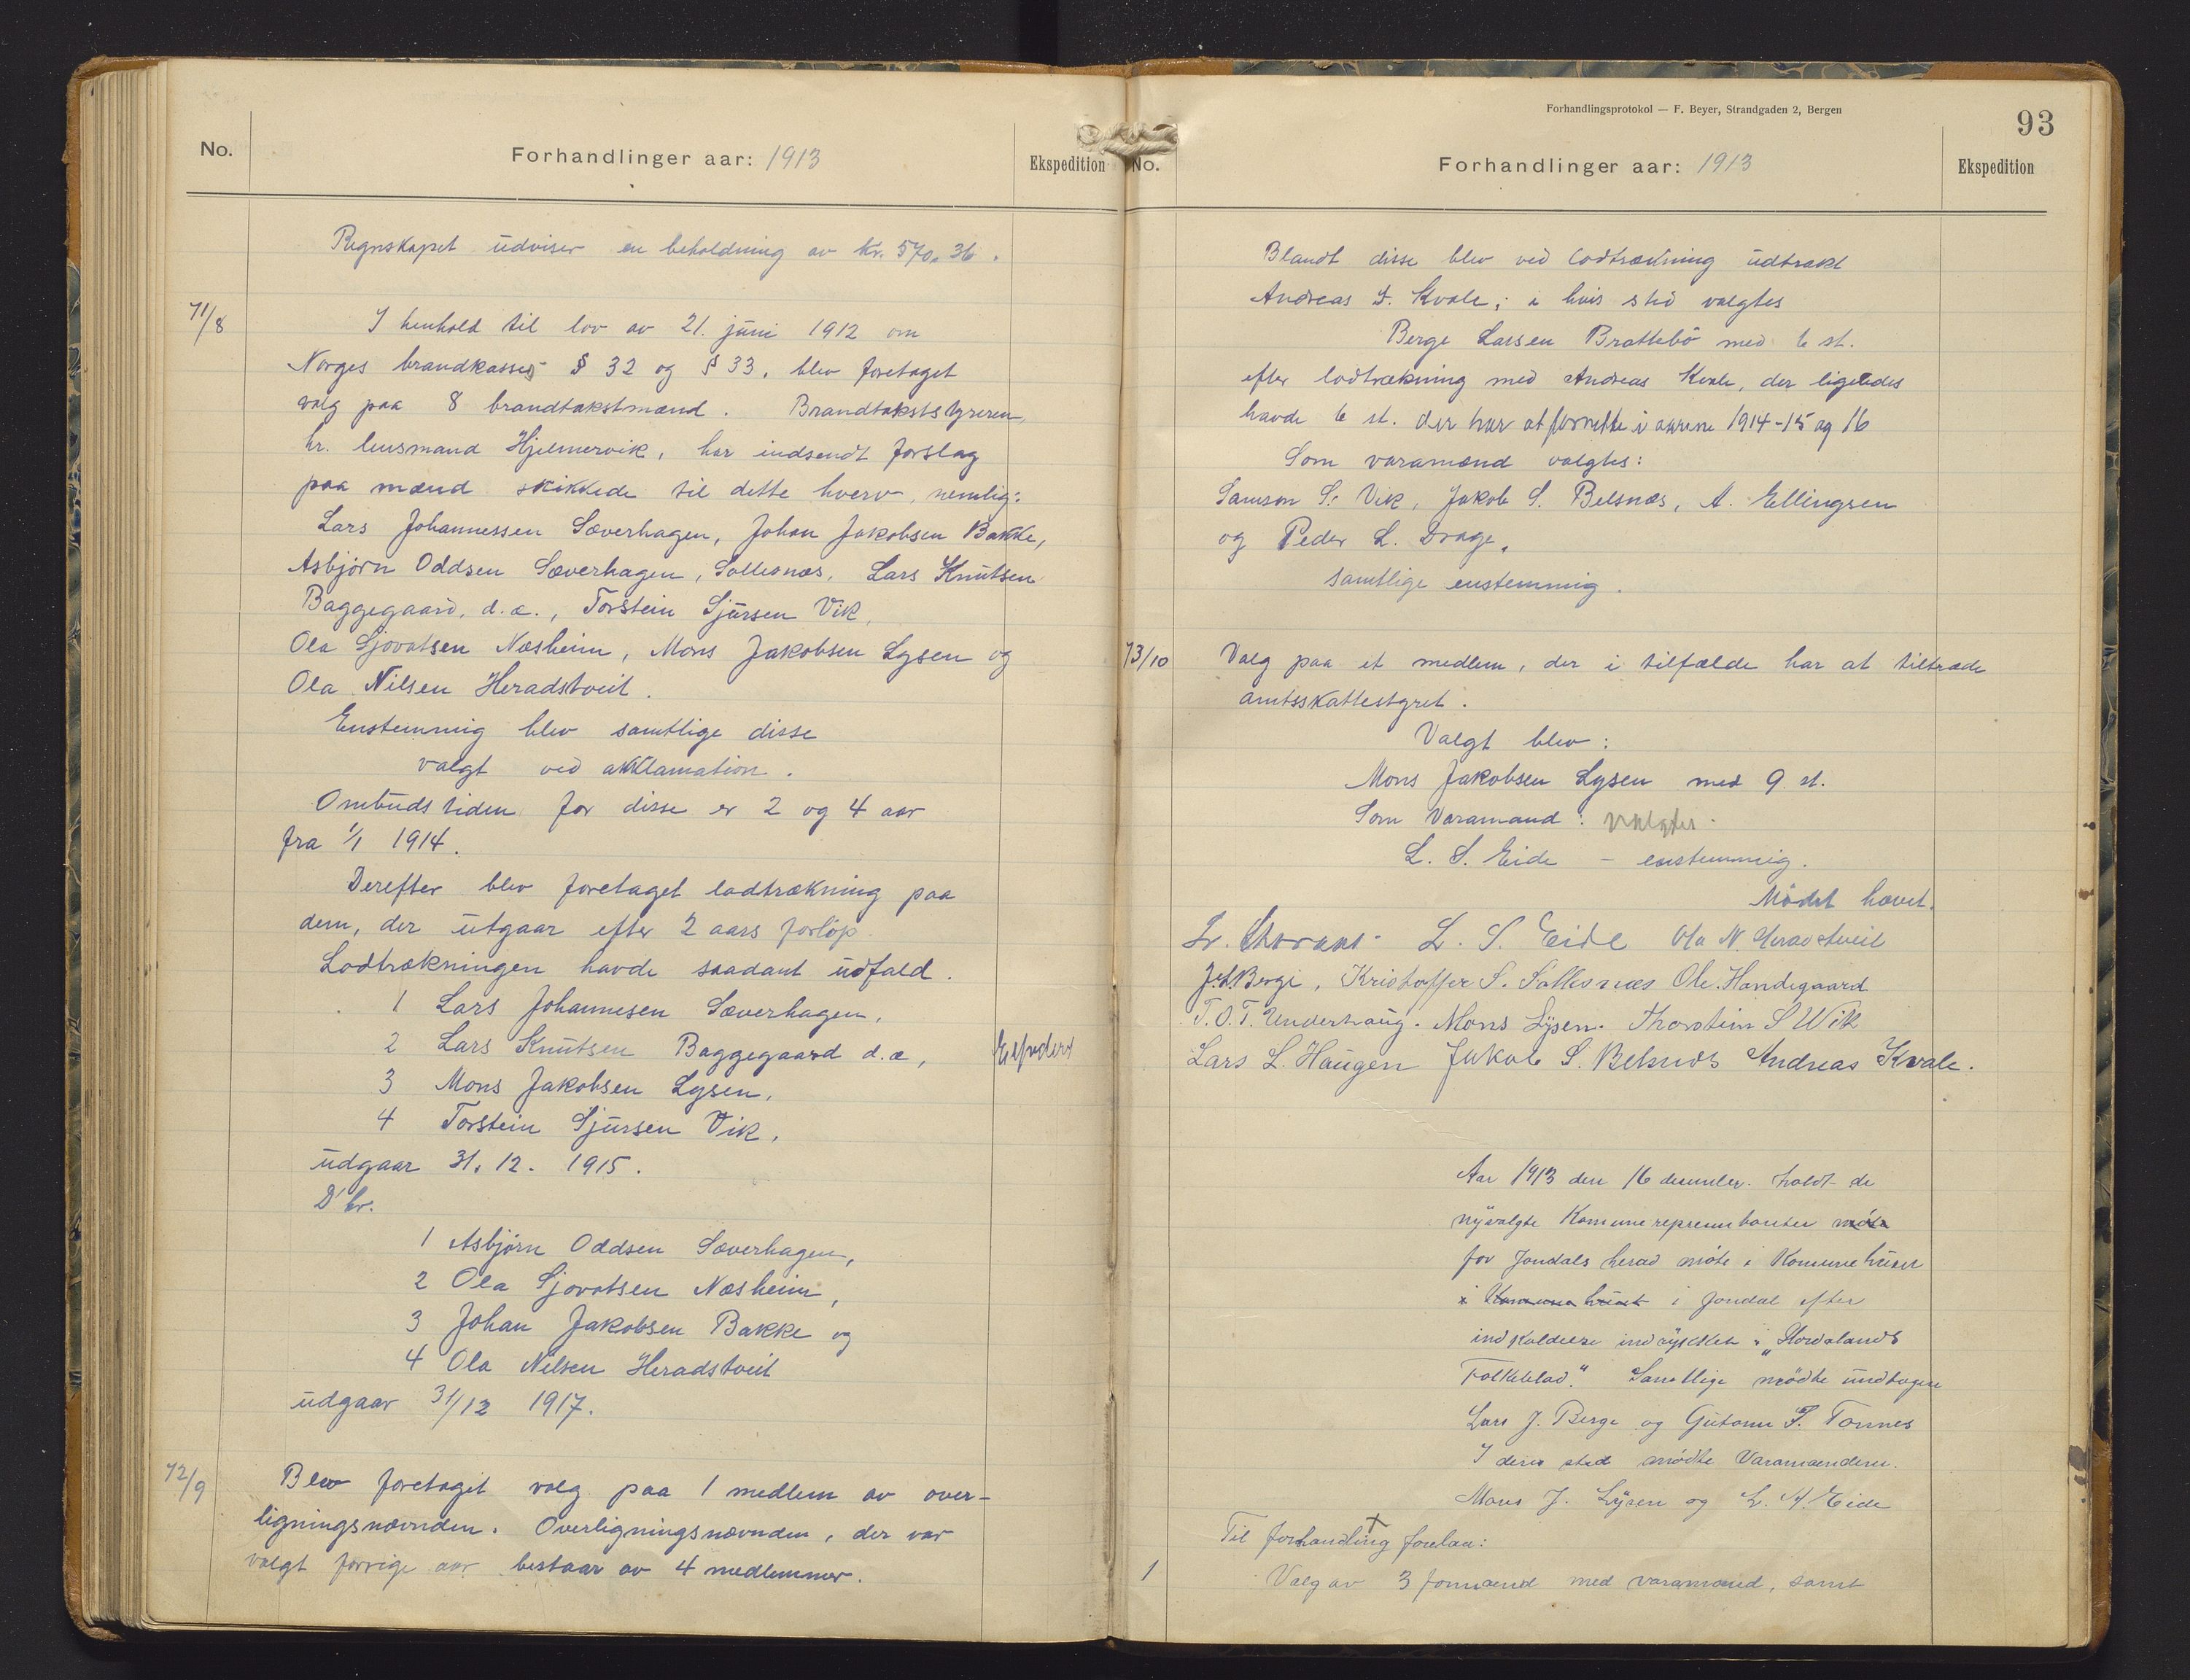 No.
Forhandlinger aar: 1913
Ekspedition
Regnskapet udviser en beholdning av kr. 570.36.
71/8
I henhold til lov av 21. juni 1912 om
Norges brandkasses § 32 og § 33, blev foretaget
valg paa 8 brandtakstmænd. Brandtakstslyreren,
hr. lensmand Hjelmervik, har indsendt forslag
paa mænd skikkede til dette hverv, nemlig:
Lars Johannessen Sæverhagen, Johan Jakobsen Bakke,
Asbjørn Oddsen Sæverhagen, Sollesnæs, Lars Knutsen
Baggegaard, d.æ., Torstein Sjursen Vik,
Ola Sjovatsen Næsheim, Mons Jakobsen Lysen og
Ola Nilsen Heradstveit.
Enstemmig blev samtlige disse
valgt ved akklamation.
Ombudstiden for disse er 2 og 4 aar
fra 1/1 1914.
Derefter blev foretaget lodtrækning paa
dem, der utgaar efter 2 aars forløp.
Lodtrækningen havde saadant udfald.
1 Lars Johannesen Sæverhagen,
2 Lars Knutsen Baggegaard d.æ,
3 Mons Jakobsen Lysen,
4 Torstein Sjursen Vik,
udgaar 31.12. 1915.
D'hr.
1 Asbjørn Oddsen Sæverhagen,
2 Ola Sjovatsen Næsheim,
3 Johan Jakobsen Bakke og
4 Ola Nilsen Heradstveit
udgaar 31/12 1917.
72/9
Blev foretaget valg paa 1 medlem av over-
ligningsnævnden. Overligningsnævnden, der var
valgt forrige aar bestaar av 4 medlemmer.
Forhandlingsprotokol — F. Beyer, Strandgaden 2, Bergen
93
No.
Forhandlinger aar: 1913
Ekspedition
Blandt disse blev ved lodtrækning udtrækt
Andreas S. Kvale; i hvis sted valgtes
Berge Larsen Brattebø med 6 st.
efter lodtrækning med Andreas Kvale, der ligeledes
havde 6 st. der har at forrette i aarene 1914-15 og 16
Som varamænd valgtes:
Samson S. Vik, Jakob S. Belsnæs, A. Ellingsen
og Peder L. Drage,
samtlige enstemmig.
73/10
Valg paa et medlem, der i tilfælde har at tiltræde
amtsskattestyret.
Valgt blev:
Mons Jakobsen Lysen med 9 st.
Som Varamand: valgtes
L. S. Eide - enstemmig.
Mødet hævet.
L. S. Eide Ola N. Heradstveit
Kristoffer S. Sollesnæs Ole Handegaard
T.O.T. Underhaug. Mons Lysen. Thorstein S Wik
Lars L. Haugen Jakob S. Belsnæs Andreas Kvale.
Aar 1913 den 16 december holdt de
nyvalgte Komunerepresentanter møte
for Jondals herad møte i Komunehuset
i Komunehuset i Jondal efter
indkaldelse indrykket i "Hordalands
Folkeblad". Samtlige mødte undtagen
Lars J. Berge og Guttorm T. Tornes
I deres sted mødte Varamændene.
Mons J. Lysen og L. S. Eide
Til forhandling forelaa:
1
Valg av 3 formænd med varamænd, samt